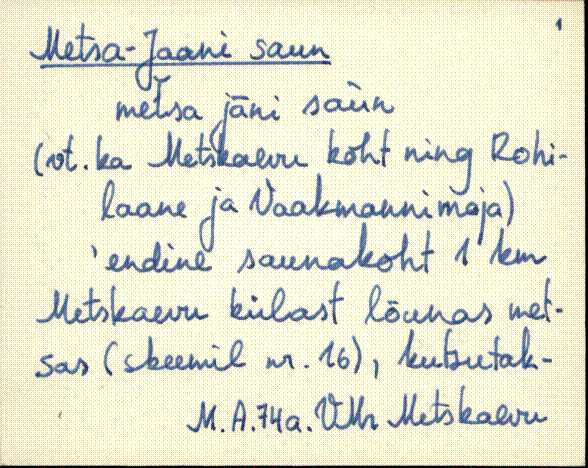 1
Metsa-Jaani saun
metsa jāni saùn
(vt. ka Metskaevu koht ning Rohi-
laane ja Vaakmanni maja)
'endine saunakoht 1 km
Metskaevu külast lõunas met-
sas (skeemil nr. 16), kutsutak-
M.A.74a. VMr Metskaevu